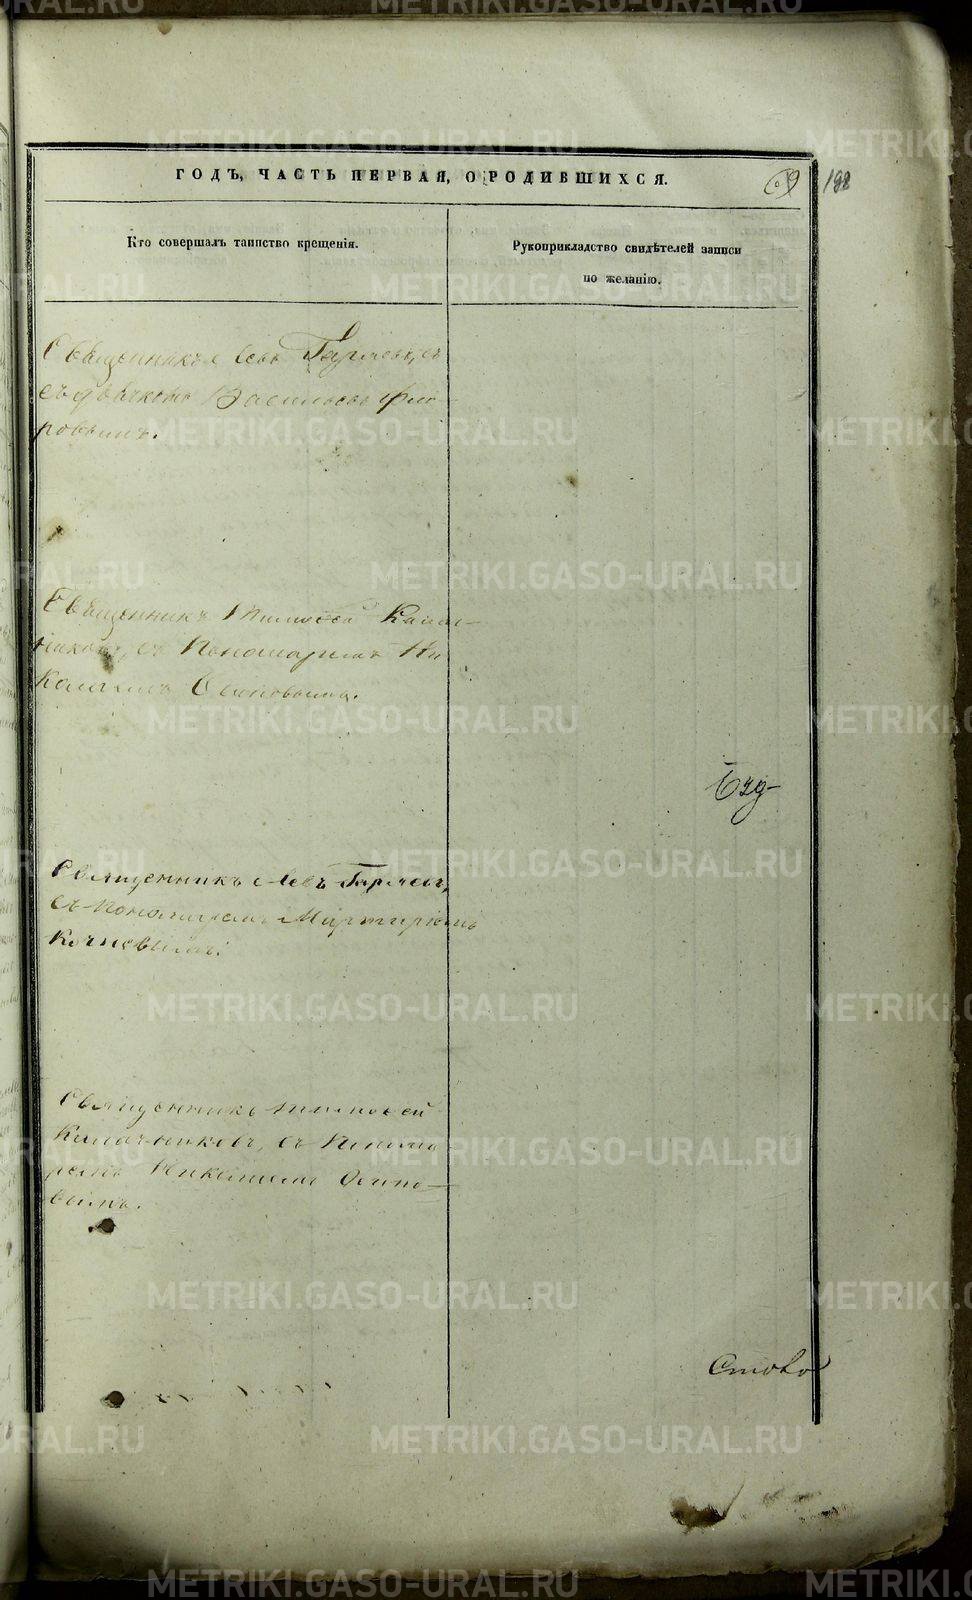 ГОДЪ, ЧАСТЬ ПЕРВАЯ, О РОДИВШИХСЯ.
198
Кто совершалъ таинство крещенія.
Рукоприкладство свидѣтелей записи
по желанію.
Священникъ Левъ Гаряевъ, съ
съ дьячкомъ Васильемъ Фло
ровымъ.
Священникъ Тимофей Калач-
никовъ, съ Пономаремъ Ни
колаемъ Осиповымъ.
Священникъ Левъ Гаряевъ,
съ Пономаремъ Мартиріемъ
Кочневымъ.
Священникъ Тимофей
Калачниковъ, съ Понома
ремъ Николаемъ Осипо-
вымъ.
METRIKI.GASO-URAL.RU